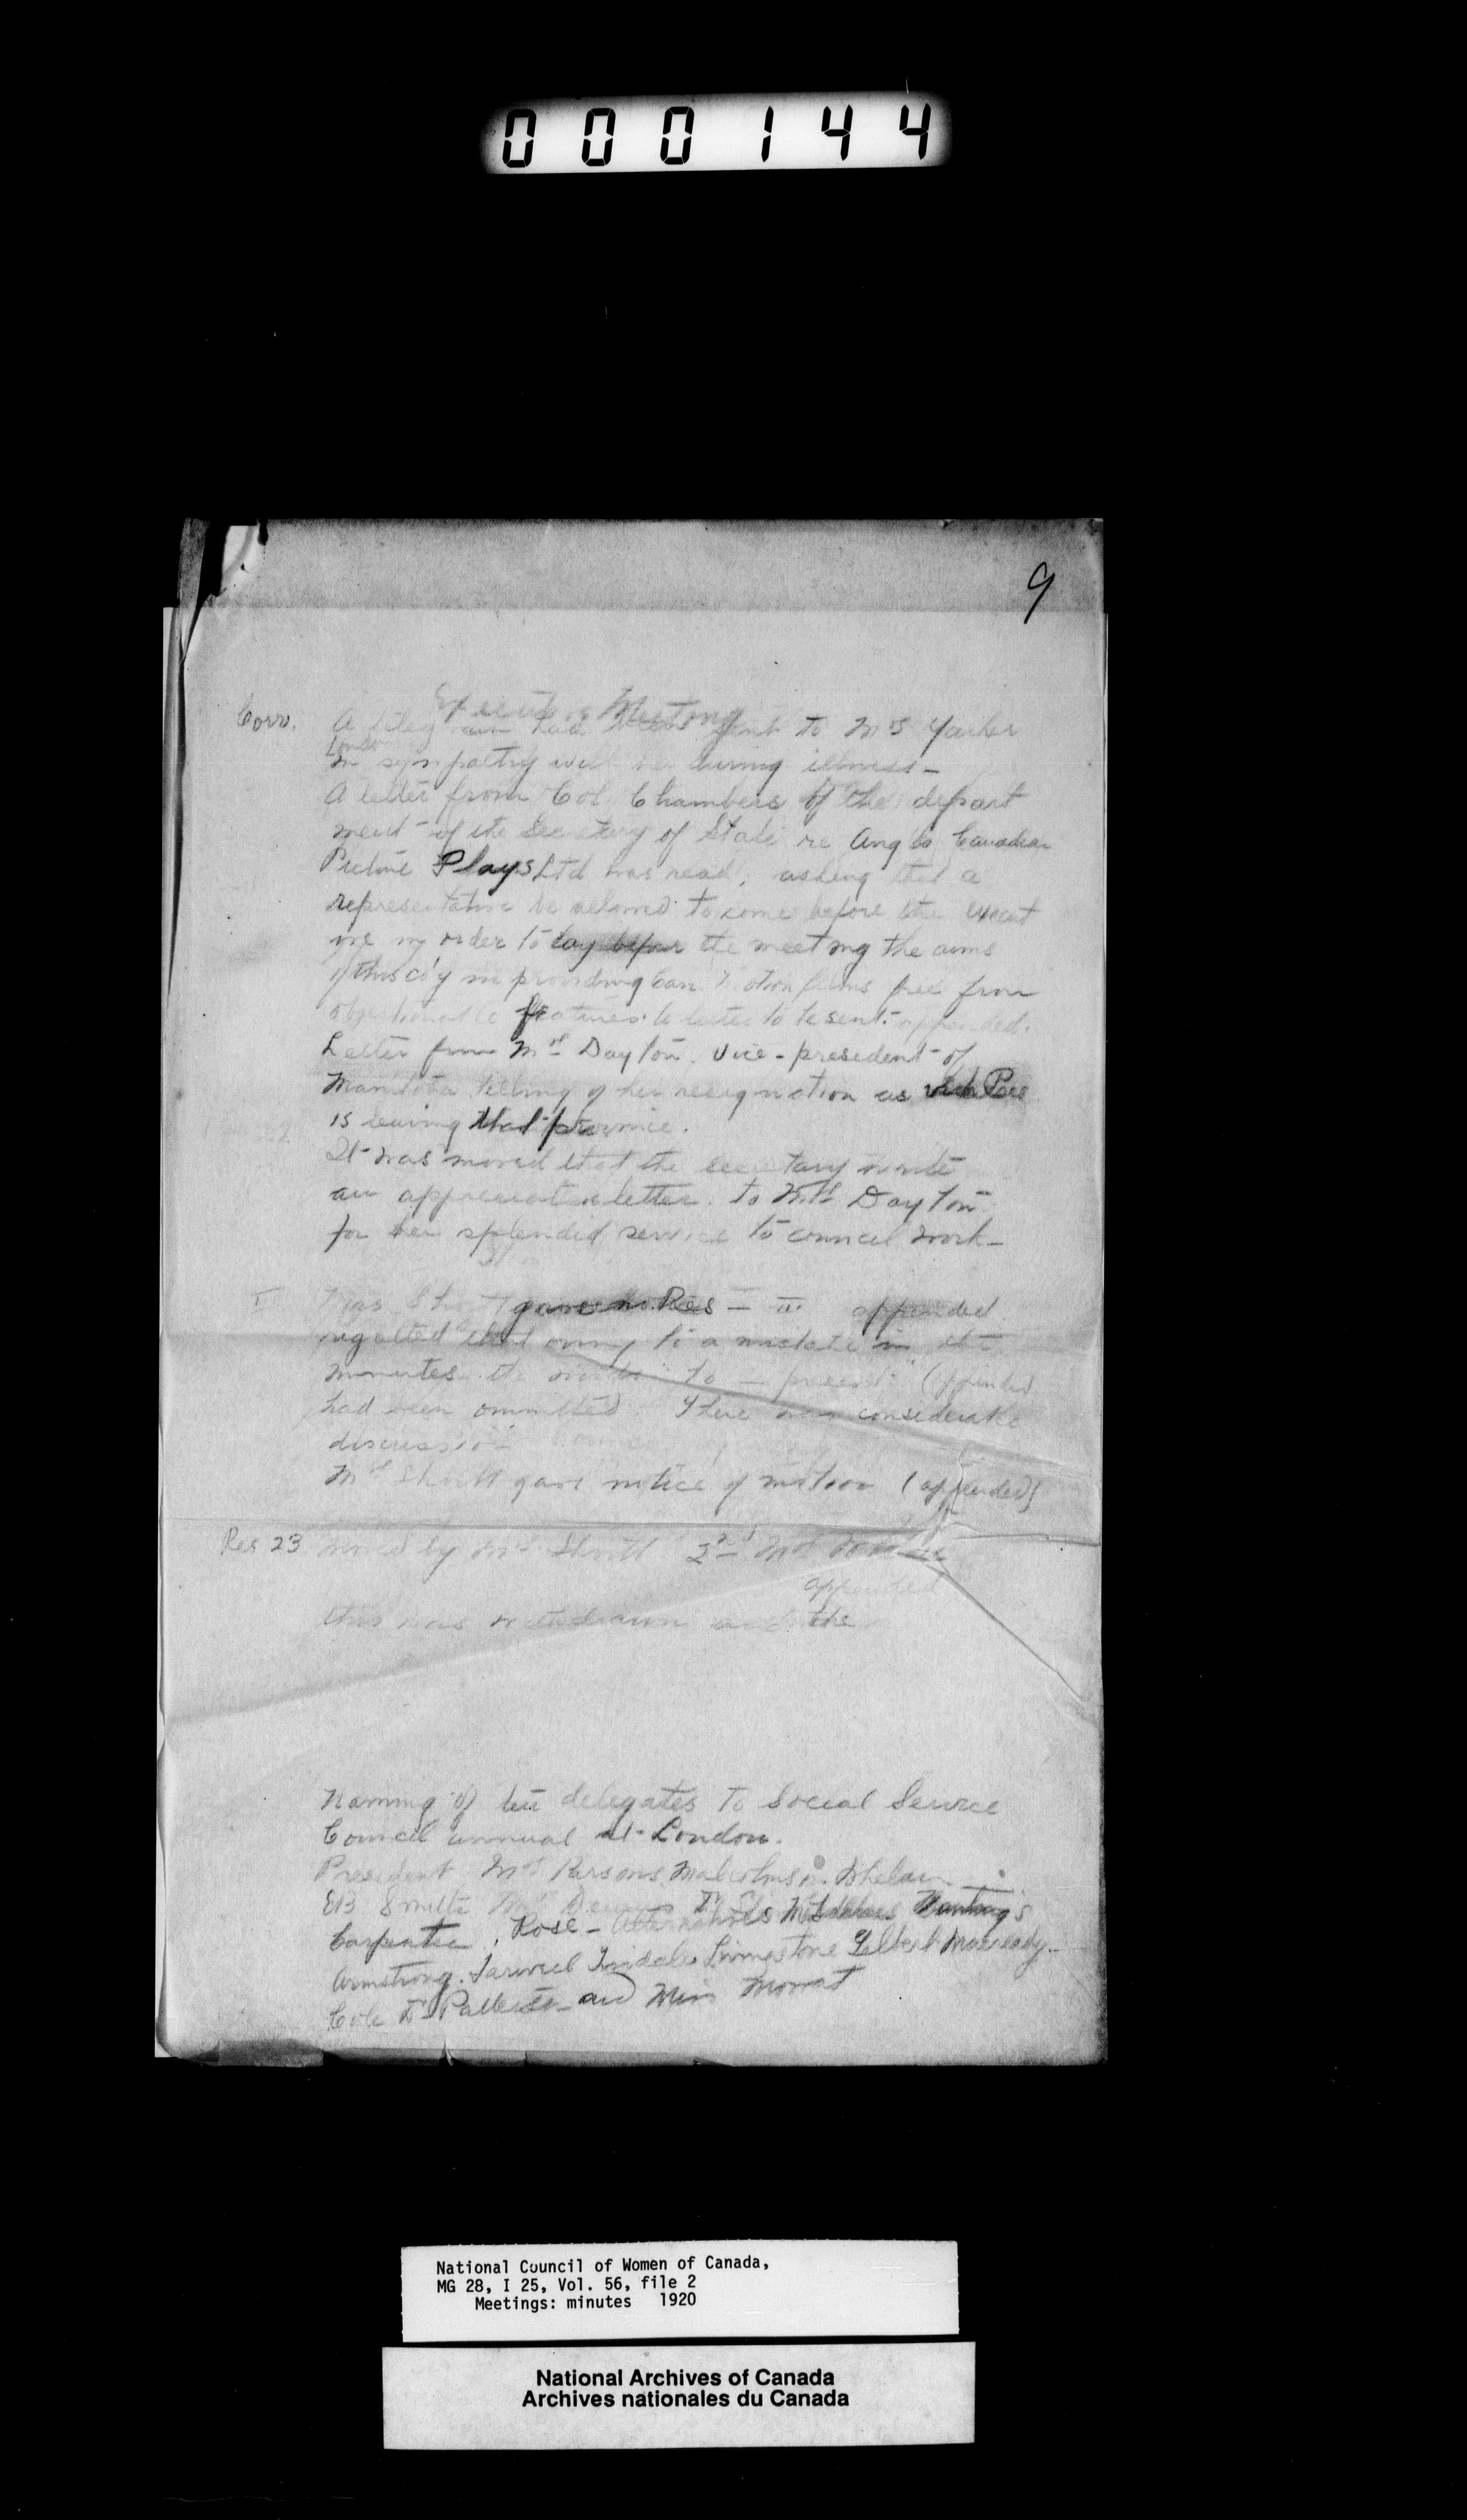 000144
9
Executive Meeting
Corr. A telegram had been sent to Mrs Yarker
London
in sympathy with her during illness -
A letter from Col. Chambers of the depart
ment of the Secretary of State re Anglo Canadian
Picture Plays Ltd was read, asking that a
representative be allowed to come before the execut
ive in order to lay before the meeting the aims
of this co'y in providing Can. Motion films free from
objectionable features. letter to be sent. appended.
Letter from Mrs Dayton, Vice-president of
Manitoba telling of her resignation as
is leaving that province.
It was moved that the secretary write
an appreciative letter to Mrs Dayton
for her splendid service to council work -
gave no. Res - III appended
regretted that owing to a mistake in the
minutes the words "to - " (appended
had been ommitted. There was considerable
discussion
Mrs Shortt gave notice of motion (appended)
Res 23 moved by Mrs Shortt 2nd Mrs
appended
this was withdrawn and the
Naming of ten delegates to Social Service
Council annual at London.
President Mrs Parsons, Malcolmson. Whelan
EB Smith Mrs
Carpenter, Rose - Alternatives
Armstrong. Tindale Livingstone Gilbert
Cole Dr Patterson and Miss Mowat
National Council of Women of Canada,
MG 28, I 25, Vol. 56, file 2
Meetings: minutes 1920
National Archives of Canada
Archives nationales du Canada